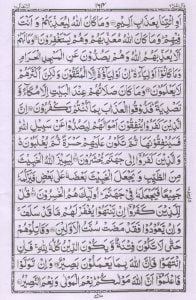 ۱۶۴
اَوِ ائْتِنَا بِعَذَابٍ اَلِيْمٍ وَمَا كَانَ اللّٰهُ لِيُعَذِّبَهُمْ وَاَنْتَ
فِيْهِمْ وَمَا كَانَ اللّٰهُ مُعَذِّبَهُمْ وَهُمْ يَسْتَغْفِرُوْنَ وَمَا لَهُمْ
اَلَّا يُعَذِّبَهُمُ اللّٰهُ وَهُمْ يَصُدُّوْنَ عَنِ الْمَسْجِدِ الْحَرَامِ
وَمَا كَانُوْۤا اَوْلِيَآءَهٗ اِنْ اَوْلِيَآؤُهٗۤ اِلَّا الْمُتَّقُوْنَ وَلٰكِنَّ اَكْثَرَهُمْ
لَا يَعْلَمُوْنَ وَمَا كَانَ صَلَاتُهُمْ عِنْدَ الْبَيْتِ اِلَّا مُكَآءً وَّ
تَصْدِيَةً فَذُوْقُوا الْعَذَابَ بِمَا كُنْتُمْ تَكْفُرُوْنَ اِنَّ
الَّذِيْنَ كَفَرُوْا يُنْفِقُوْنَ اَمْوَالَهُمْ لِيَصُدُّوْا عَنْ سَبِيْلِ اللّٰهِ
فَسَيُنْفِقُوْنَهَا ثُمَّ تَكُوْنُ عَلَيْهِمْ حَسْرَةً ثُمَّ يُغْلَبُوْنَ
وَالَّذِيْنَ كَفَرُوْۤا اِلٰى جَهَنَّمَ يُحْشَرُوْنَ لِيَمِيْزَ اللّٰهُ الْخَبِيْثَ
مِنَ الطَّيِّبِ وَيَجْعَلَ الْخَبِيْثَ بَعْضَهٗ عَلٰى بَعْضٍ فَيَرْكُمَهٗ
جَمِيْعًا فَيَجْعَلَهٗ فِيْ جَهَنَّمَ اُولٰٓئِكَ هُمُ الْخٰسِرُوْنَ قُلْ
لِّلَّذِيْنَ كَفَرُوْۤا اِنْ يَّنْتَهُوْا يُغْفَرْ لَهُمْ مَّا قَدْ سَلَفَ
وَاِنْ يَّعُوْدُوْا فَقَدْ مَضَتْ سُنَّتُ الْاَوَّلِيْنَ وَقَاتِلُوْهُمْ
حَتّٰى لَا تَكُوْنَ فِتْنَةٌ وَّيَكُوْنَ الدِّيْنُ كُلُّهٗ لِلّٰهِ فَاِنِ
انْتَهَوْا فَاِنَّ اللّٰهَ بِمَا يَعْمَلُوْنَ بَصِيْرٌ وَاِنْ تَوَلَّوْا
فَاعْلَمُوْۤا اَنَّ اللّٰهَ مَوْلٰىكُمْ نِعْمَ الْمَوْلٰى وَنِعْمَ النَّصِيْرُ